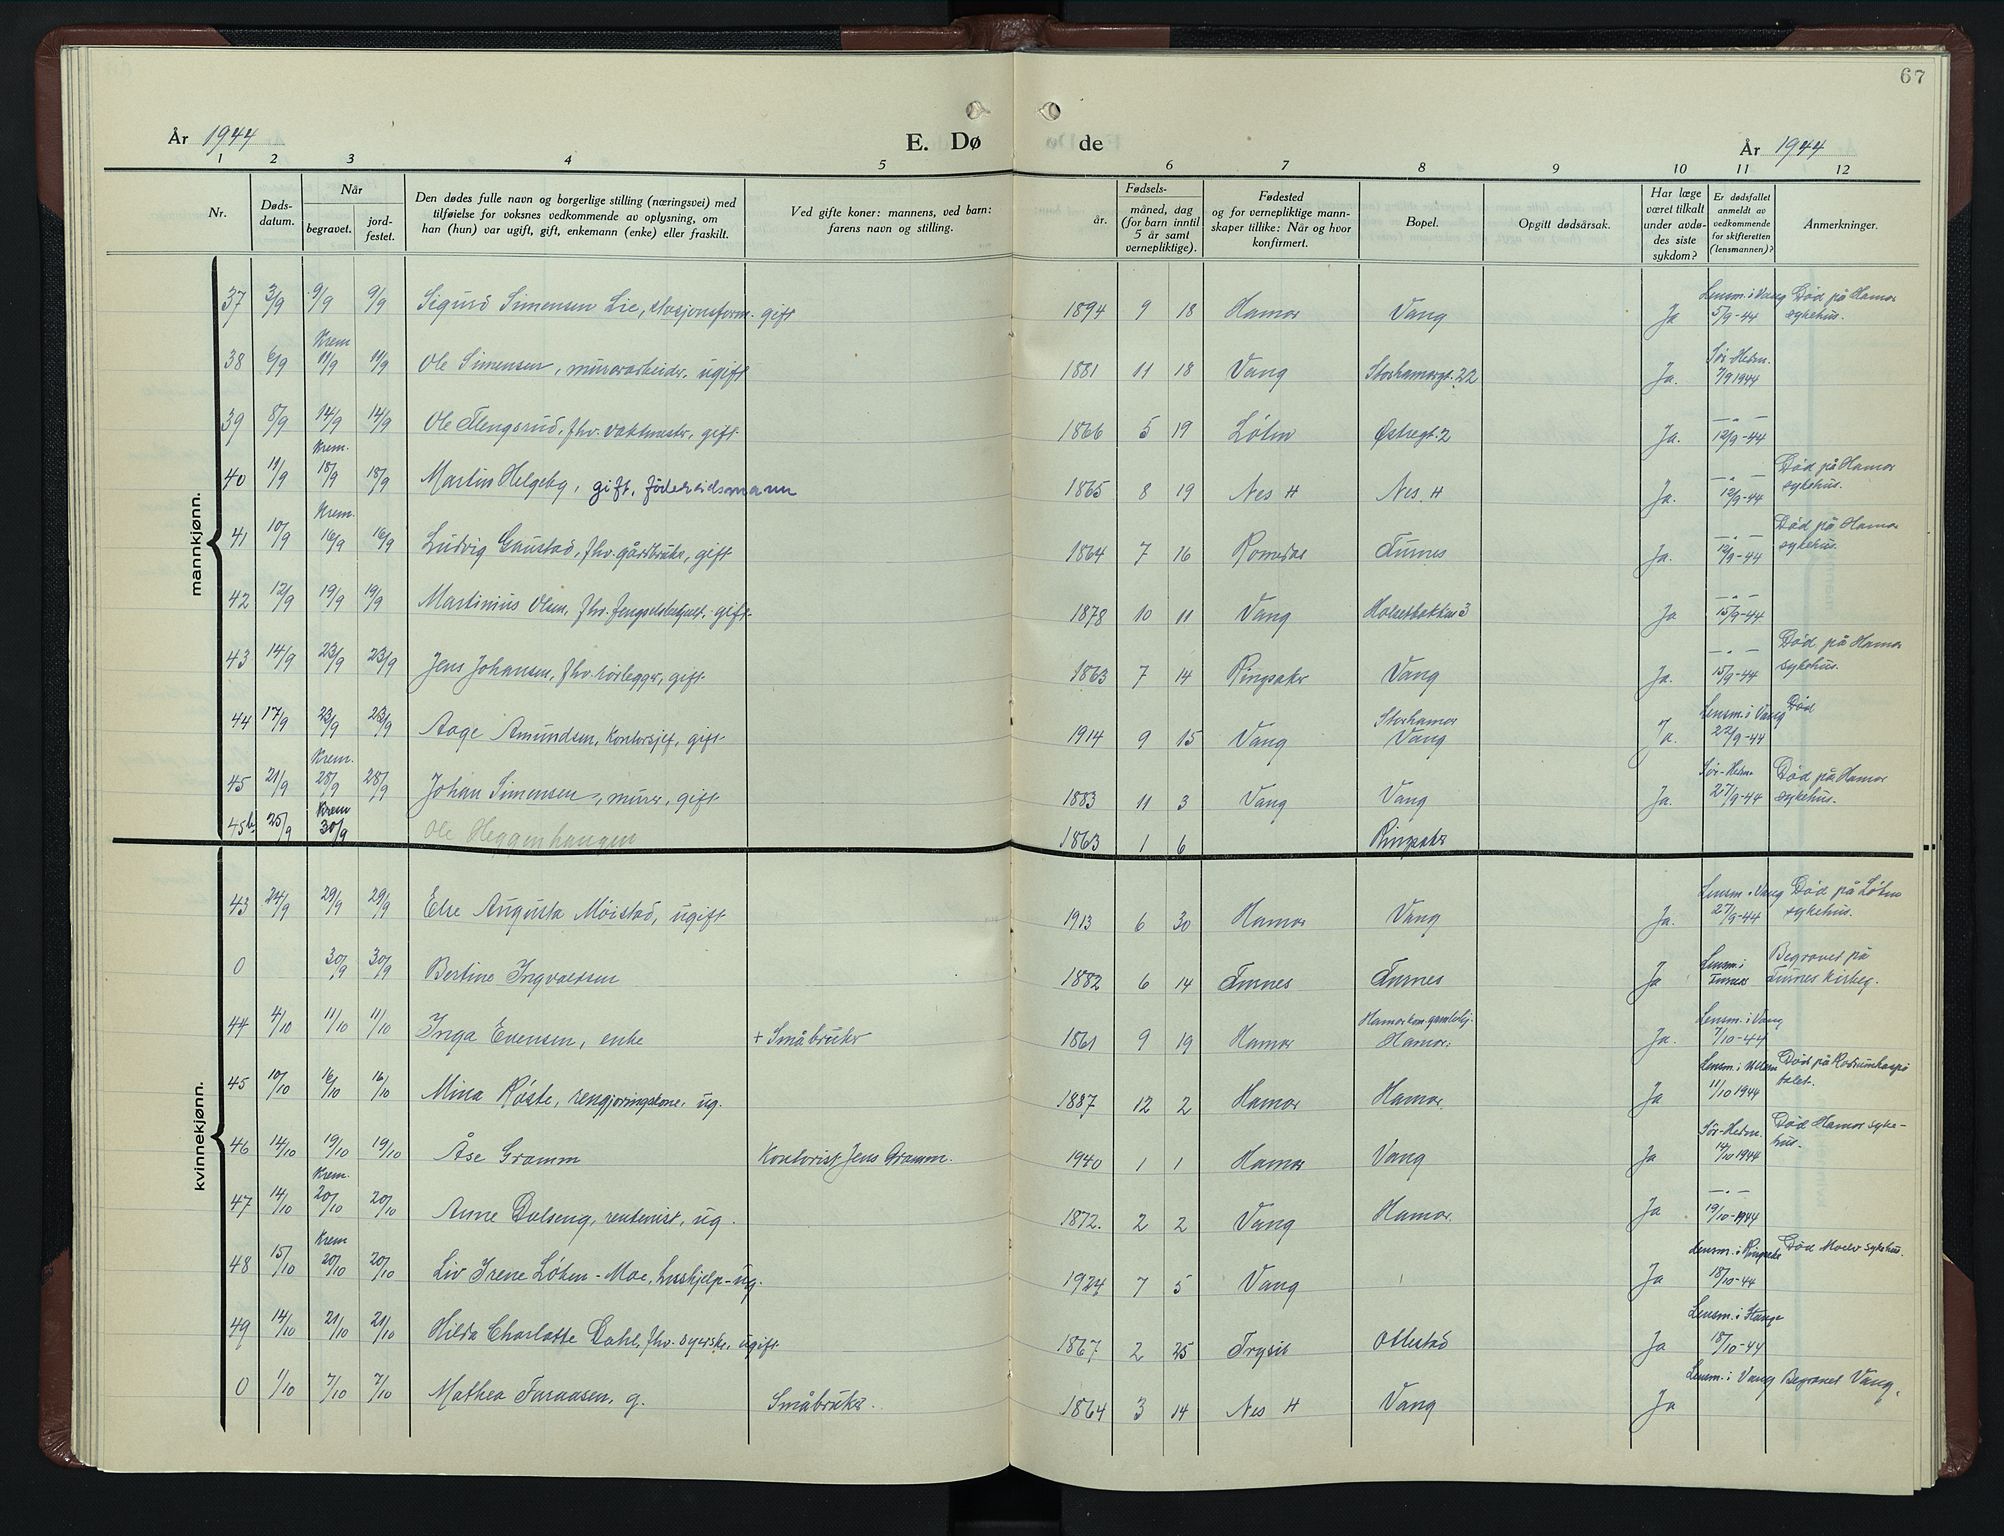 67
År 1944 E. Dø de År 1944
1 2 3 4 5 6 7 8 9 10 11 12
Nr. Døds-datum. Når begravet. jord-festet. Den dødes fulle navn og borgerlige stilling (næringsvei) med tilføielse for voksnes vedkommende av oplysning, om han (hun) var ugift, gift, enkemann (enke) eller fraskilt. Ved gifte koner: mannens, ved barn: farens navn og stilling. Fødsels- år. måned, dag (for barn inntil 5 år samt vernepliktige). Fødested og for vernepliktige mann-skaper tillike: Når og hvor konfirmert. Bopel. Opgitt dødsårsak. Har læge været tilkalt under avdø-des siste sykdom? Er dødsfallet anmeldt av vedkommende for skifteretten (lensmannen)? Anmerkninger.
mankjønn.
37 3/9 9/9 9/9 Sigurd Simensen Lie, gift 1894 9 18 Hamar Vang Ja Lensm. i Vang 5/9-44 Død på Hamar sykehus.
38 6/9 Krem 11/9 11/9 Ole Simensen, murerarbeider, ugift 1881 11 18 Vang Storhamargt. 22 Ja. Sør-Hedm. 7/9 1944
39 8/9 14/9 14/9 Ole Flengsrud, fhv. vaktmester, gift 1866 5 19 Løten Østregt. 2 Ja. —"— 12/9-44
40 11/9 Krem. 18/9 18/9 Martin Helgeby, gift, føderådsmann 1865 8 19 Nes H Nes H Ja. —"— 12/9-44 Død på Hamar sykehus.
41 10/9 Krem. 16/9 16/9 Ludvig Gaustad, fhv. gårdbruker, gift 1864 7 16 Romedal Furnes Ja. —"— 12/9-44 Død på Hamar sykehus.
42 12/9 19/9 19/9 Martinius Olsen, fhv. fengselsbetjent, gift 1878 10 11 Vang Holsetbakken 3 Ja —"— 15/9-44
43 14/9 23/9 23/9 Jens Johansen, fhv. rørlegger, gift 1863 7 14 Ringsaker Vang Ja. —"— 15/9-44 Død på Hamar sykehus.
44 17/9 23/9 23/9 Aage Amundsen, kontorsjef, gift 1914 9 15 Vang Storhamar Vang Ja. Lensm. i Vang 22/9-44 Død
45 21/9 Krem. 28/9 28/9 Johan Simensen, murer, gift 1883 11 3 Vang Vang Ja. Sør-Hedm. 27/9-44 Død på Hamar sykehus.
45b 25/9 Krem 30/9 Ole Heggenhaugen 1863 1 6 Ringsaker
kvinnekjønn.
43 24/9 29/9 29/9 Else Augusta Møistad, ugift 1913 6 30 Hamar Vang Ja. Lensm. i Vang 27/9-44 Død på Løten sykehus.
0 30/9 30/9 Bertine Ingvaldsen 1882 6 14 Furnes Furnes Ja Lensm. i Furnes Begravet på Furnes kirkeg.
44 4/10 11/10 11/10 Inga Evensen, enke + Småbruker 1861 9 19 Hamar Hamar kom. gamlehj. Hamar. Ja. Lensm. i Vang 7/10-44
45 10/10 16/10 16/10 Mina Røste, rengjøringskone, ug. 1887 12 2 Hamar Hamar. Ja Lensm. i 11/10 1944 Død på Radiumhospitalet.
46 14/10 19/10 19/10 Åse Gramm Kontorist Jens Gramm. 1940 1 1 Hamar Vang Ja Sør-Hedm. 14/10 1944 Død Hamar syke-hus.
47 14/10 Krem. 20/10 20/10 Anne Dalseng, rentenist, ug. 1872. 2 2 Vang Hamar. Ja —"— 19/10-1944
48 15/10 Krem 20/10 20/10 Liv Irene Løken-Moe, hushjelp-ug. 1924 7 5 Vang Ja Lensm. i Ringsaker 18/10-44 Død Moelv sykehus.
49 14/10 21/10 21/10 Hilda Charlotte Dahl, fhv. syerske, ugift 1867 2 25 Trysil Ottestad Ja Lensm. i Stange 18/10-44
0 1/10 7/10 7/10 Mathea Faraasen, g. Småbruker. 1864 3 14 Nes H Vang Ja Lensm. i Vang Begravet Vang.